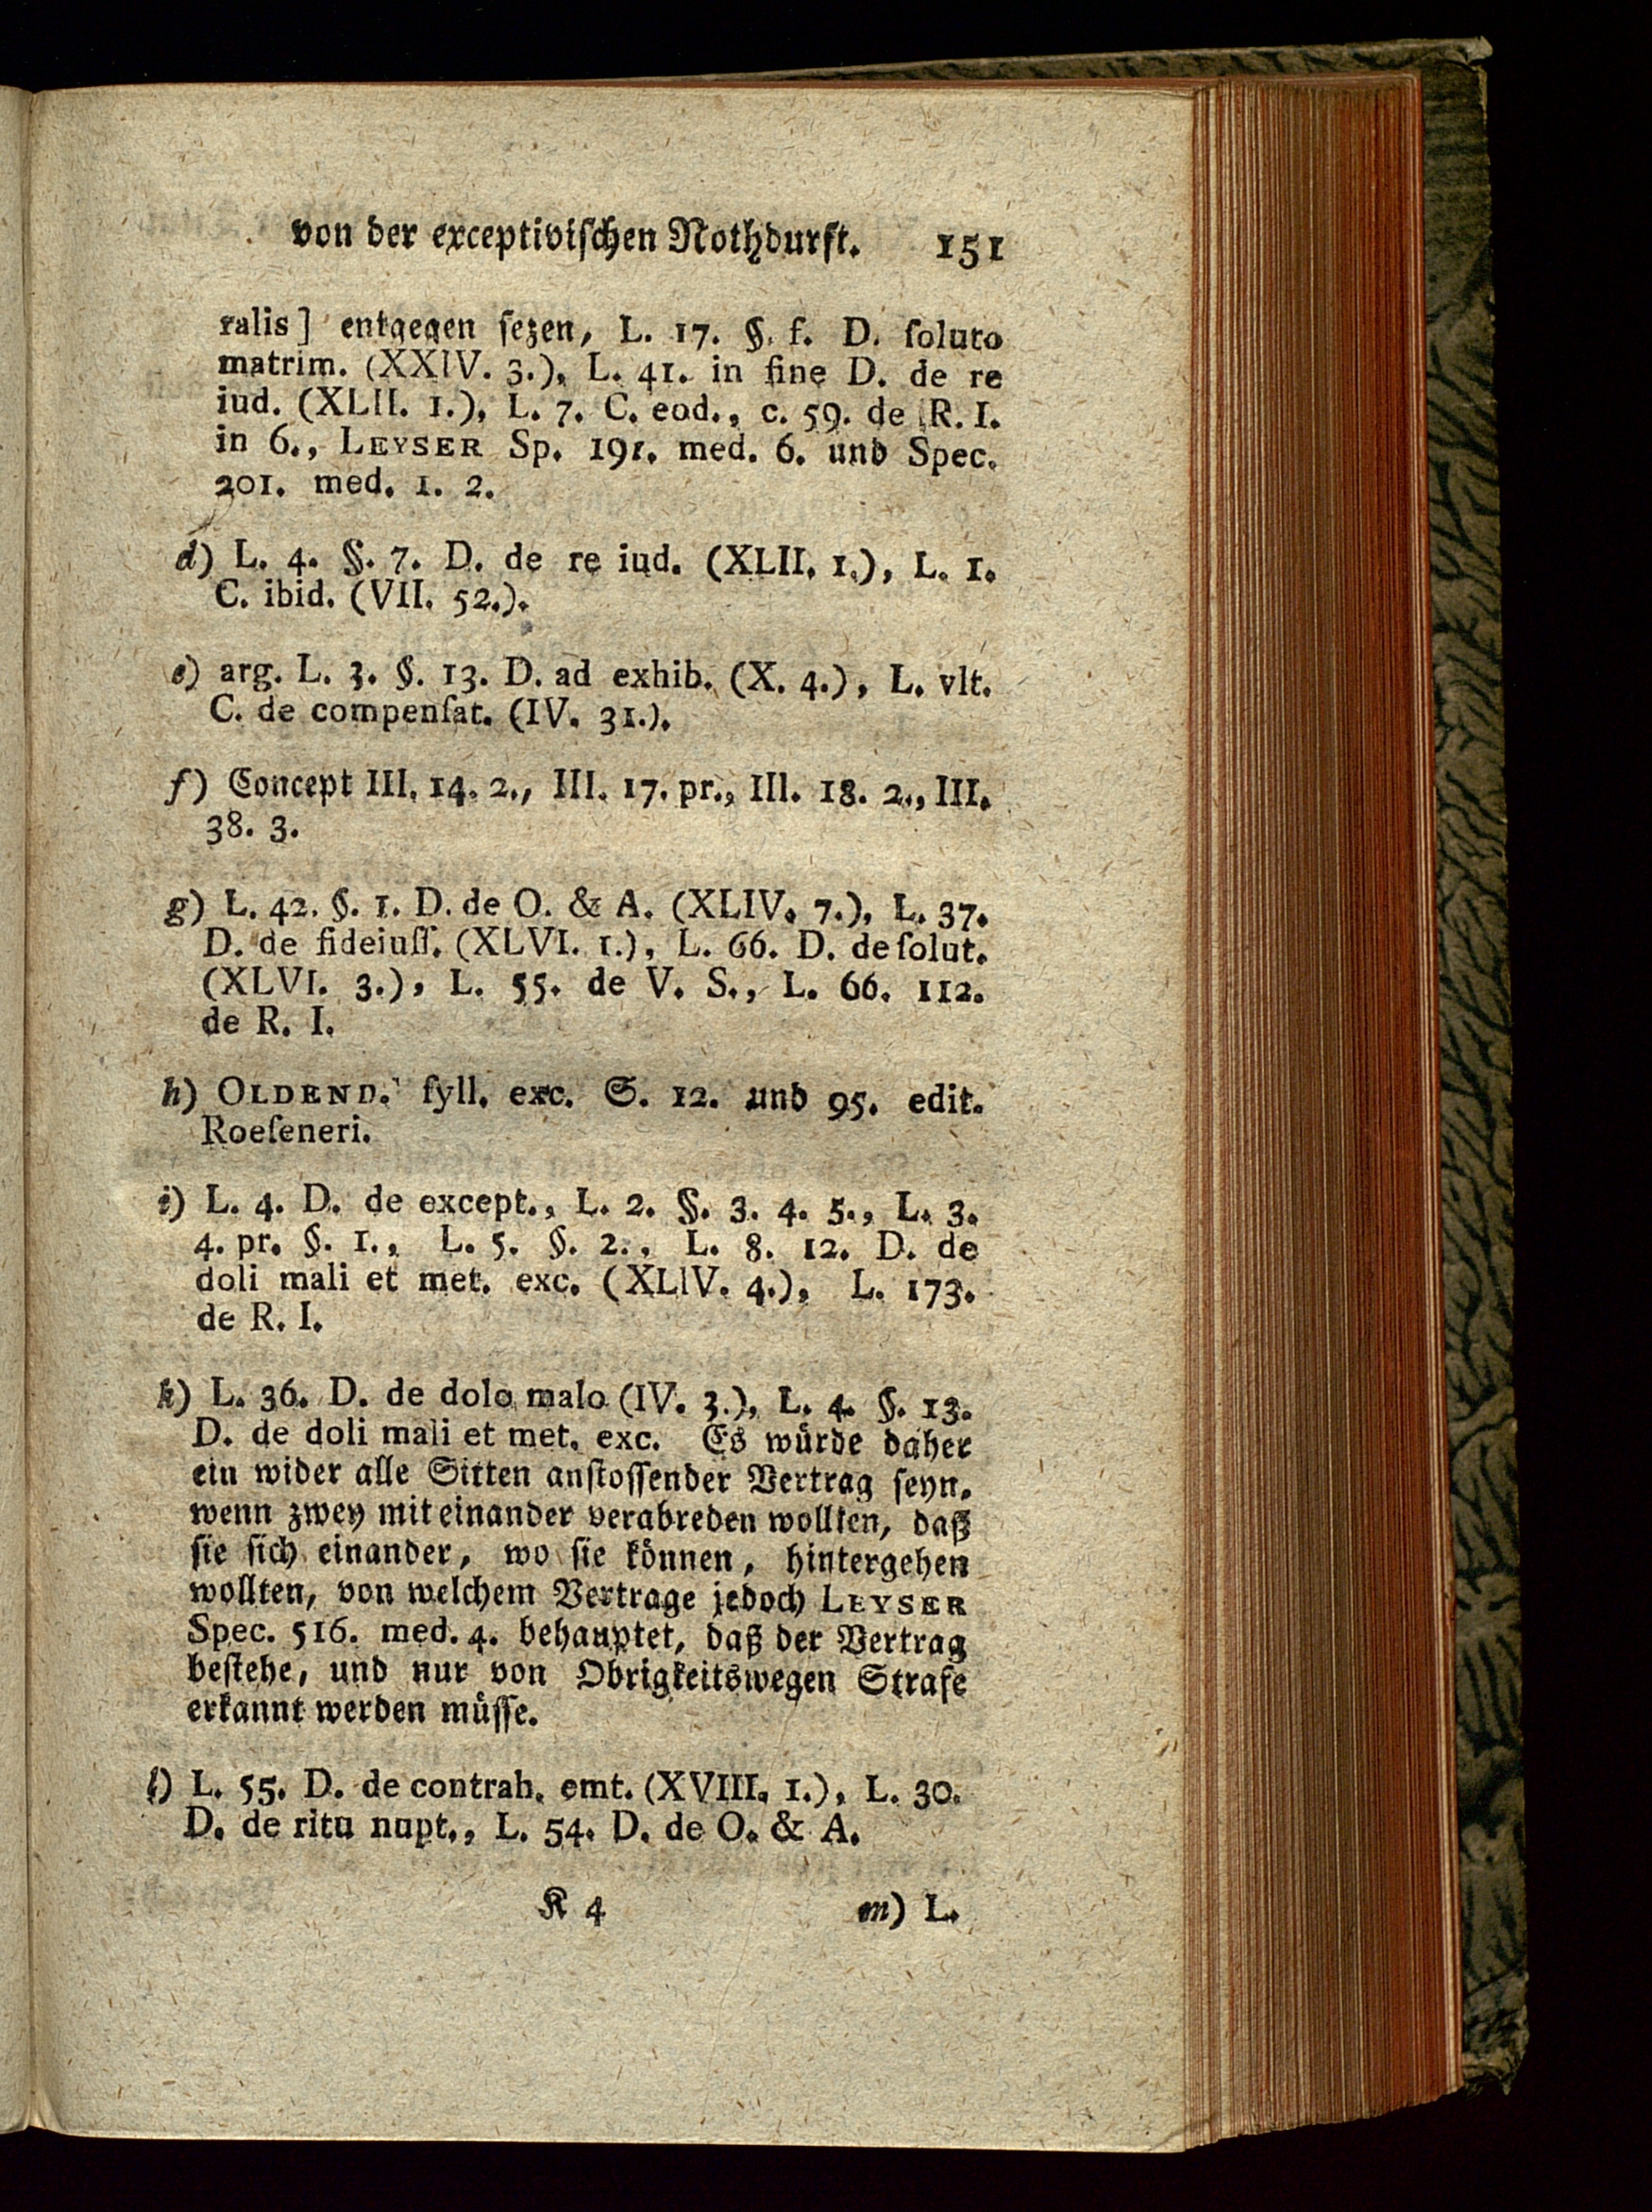 von der exceptiviſchen Nothdurft. 151
ralis] entgegen ſezen, L. 17. §. f. D. ſoluto
matrim. (XXIV. 3.), L. 41. in fine D. de re
iud. (XLII. 1.), L. 7. C. eod., c. 59. de R. I.
in 6., LEYSER Sp. 191. med. 6. und Spec.
201. med. 1. 2.
d) L. 4. §. 7. D. de re iud. (XLII. 1.), L. 1.
C. ibid. (VII. 52.).
e) arg. L. 3. §. 13. D. ad exhib. (X. 4.), L. vlt.
C. de compenſat. (IV. 31.).
f) Concept III. 14. 2., III. 17. pr., III. 18. 2., III.
38. 3.
g) L. 42. §. 1. D. de O. & A. (XLIV. 7.), L. 37.
D. de fideiuſſ. (XLVI. 1.), L. 66. D. de ſolut.
(XLVI. 3.), L. 55. de V. S., L. 66. 112.
de R. I.
h) OLDEND. ſyll. exc. S. 12. und 95. edit.
Roeſeneri.
i) L. 4. D. de except., L. 2. §. 3. 4. 5., L. 3.
4. pr. §. 1., L. 5. §. 2., L. 8. 12. D. de
doli mali et met. exc. (XLIV. 4.), L. 173.
de R. I.
k) L. 36. D. de dolo malo (IV. 3.), L. 4. §. 13.
D. de doli mali et met. exc. Es würde daher
ein wider alle Sitten anſtoſſender Vertrag ſeyn,
wenn zwey mit einander verabreden wollten, daß
ſie ſich einander, wo ſie können, hintergehen
wollten, von welchem Vertrage jedoch LEYSER
Spec. 516. med. 4. behauptet, daß der Vertrag
beſtehe, und nur von Obrigkeitswegen Strafe
erkannt werden müſſe.
l) L. 55. D. de contrah. emt. (XVIII. 1.), L. 30.
D. de ritu nupt., L. 54. D. de O. & A.
K 4 m) L.